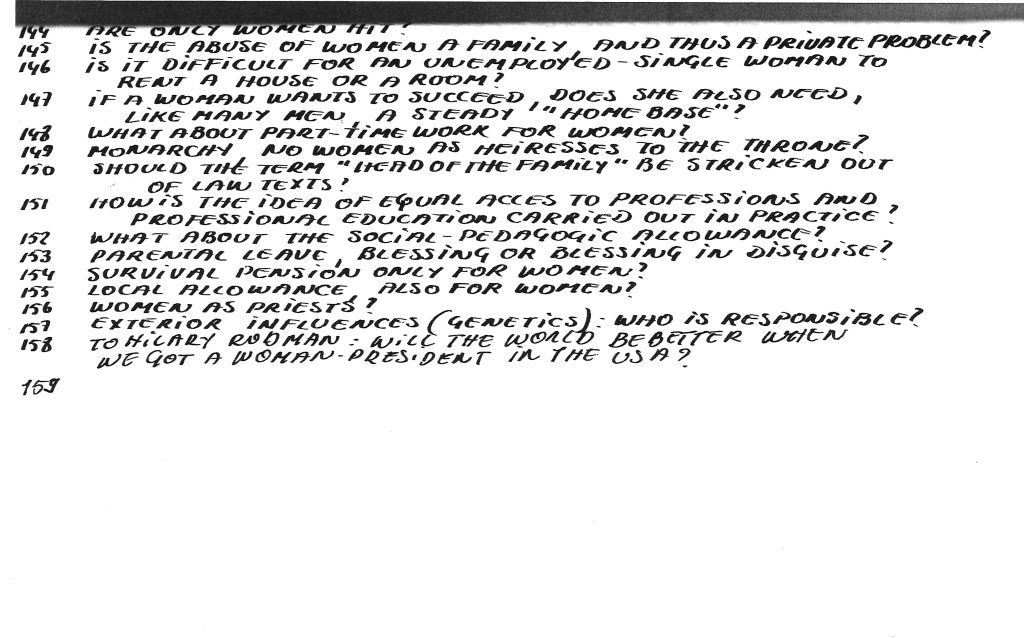 144 ARE ONLY WOMEN HIT?
145 IS THE ABUSE OF WOMEN A FAMILY, AND THUS A PRIVATE PROBLEM?
146 IS IT DIFFICULT FOR AN UNEMPLOYED-SINGLE WOMAN TO
RENT A HOUSE OR A ROOM?
147 IF A WOMAN WANTS TO SUCCEED, DOES SHE ALSO NEED,
LIKE MANY MEN, A STEADY "HOME BASE"?
148 WHAT ABOUT PART-TIME WORK FOR WOMEN?
149 MONARCHY, NO WOMEN AS HEIRESSES TO THE THRONE?
150 SHOULD THE TERM "HEAD OF THE FAMILY" BE STRICKEN OUT
OF LAW TEXTS?
151 HOW IS THE IDEA OF EQUAL ACCES TO PROFESSIONS AND
PROFESSIONAL EDUCATION CARRIED OUT IN PRACTICE?
152 WHAT ABOUT THE SOCIAL-PEDAGOGIC ALLOWANCE?
153 PARENTAL LEAVE, BLESSING OR BLESSING IN DISGUISE?
154 SURVIVAL PENSION ONLY FOR WOMEN?
155 LOCAL ALLOWANCE, ALSO FOR WOMEN?
156 WOMEN AS PRIESTS?
157 EXTERIOR INFLUENCES (GENETICS): WHO IS RESPONSIBLE?
158 TO HILARY RODMAN: WILL THE WORLD BE BETTER WHEN
WE GOT A WOMAN-PRESIDENT IN THE USA?
159